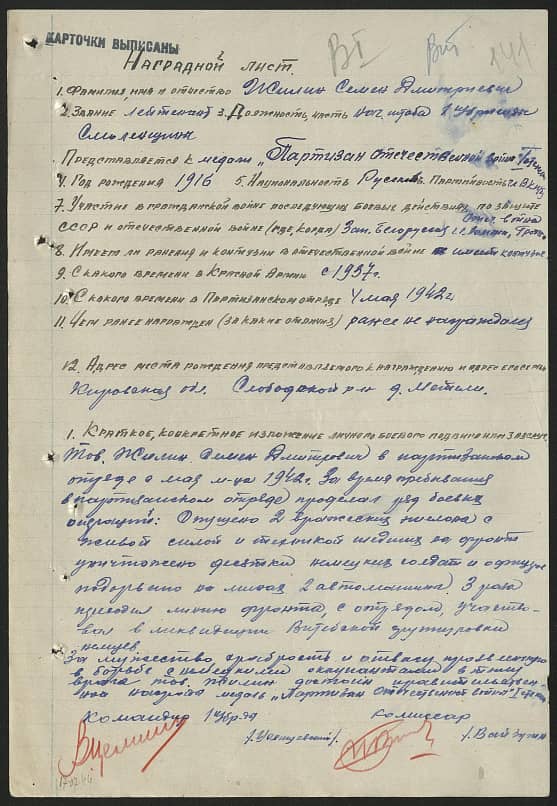 КАРТОЧКИ ВЫПИСАНЫ
141
Наградной лист.
1. Фамилия, имя и отчество Жилин Семен Дмитриевич
2. Звание лейтенант 3. Должность, часть нач. штаба 1
Смоленщина
Представляется к медали „Партизан Отечественной войны" I степени
4. Год рождения 1916 5. Национальность Русский 6. Партийность
7. Участие в гражданской войне последующих боевых действиях по защите
СССР и отечественной войне (где, когда) Зап. Белоруссия
8. Имеет ли ранения и контузии в отечественной войне имеет контузию
9. С какого времени в Красной Армии с 1937 г.
10. С какого времени в Партизанском отряде 4 мая 1942 г
11. Чем ранее награжден (за какие отличия) ранее не награждался
12. Адрес места рождения представляемого к награждению и адрес его семьи
Кировская обл. Слободской р-н д. Метели.
1. Краткое, конкретное изложение личного боевого подвига или заслуг.
Тов. Жилин Семен Дмитревич в партизанском
отряде с мая м-ца 1942г. За время пребывания
в партизанском отряде проделал ряд боевых
операций: Спущено 2 вражеских эшелона с
живой силой и техникой идевших на фронт
уничтожено десятки немецких солдат и офицеров
подорвано на минах 2 автомашины. 3 раза
переходил линию фронта, с отрядом, участво-
вал в ликвидации Витебской группировки
немцев.
За мужество храбрость и отвагу проявленную
в борьбе с немецкими оккупантами в тылу
врага тов. Жилин достоин правительствен-
ной награды медаль „Партизан Отечественной войны" I степени
Командир 1 комиссар